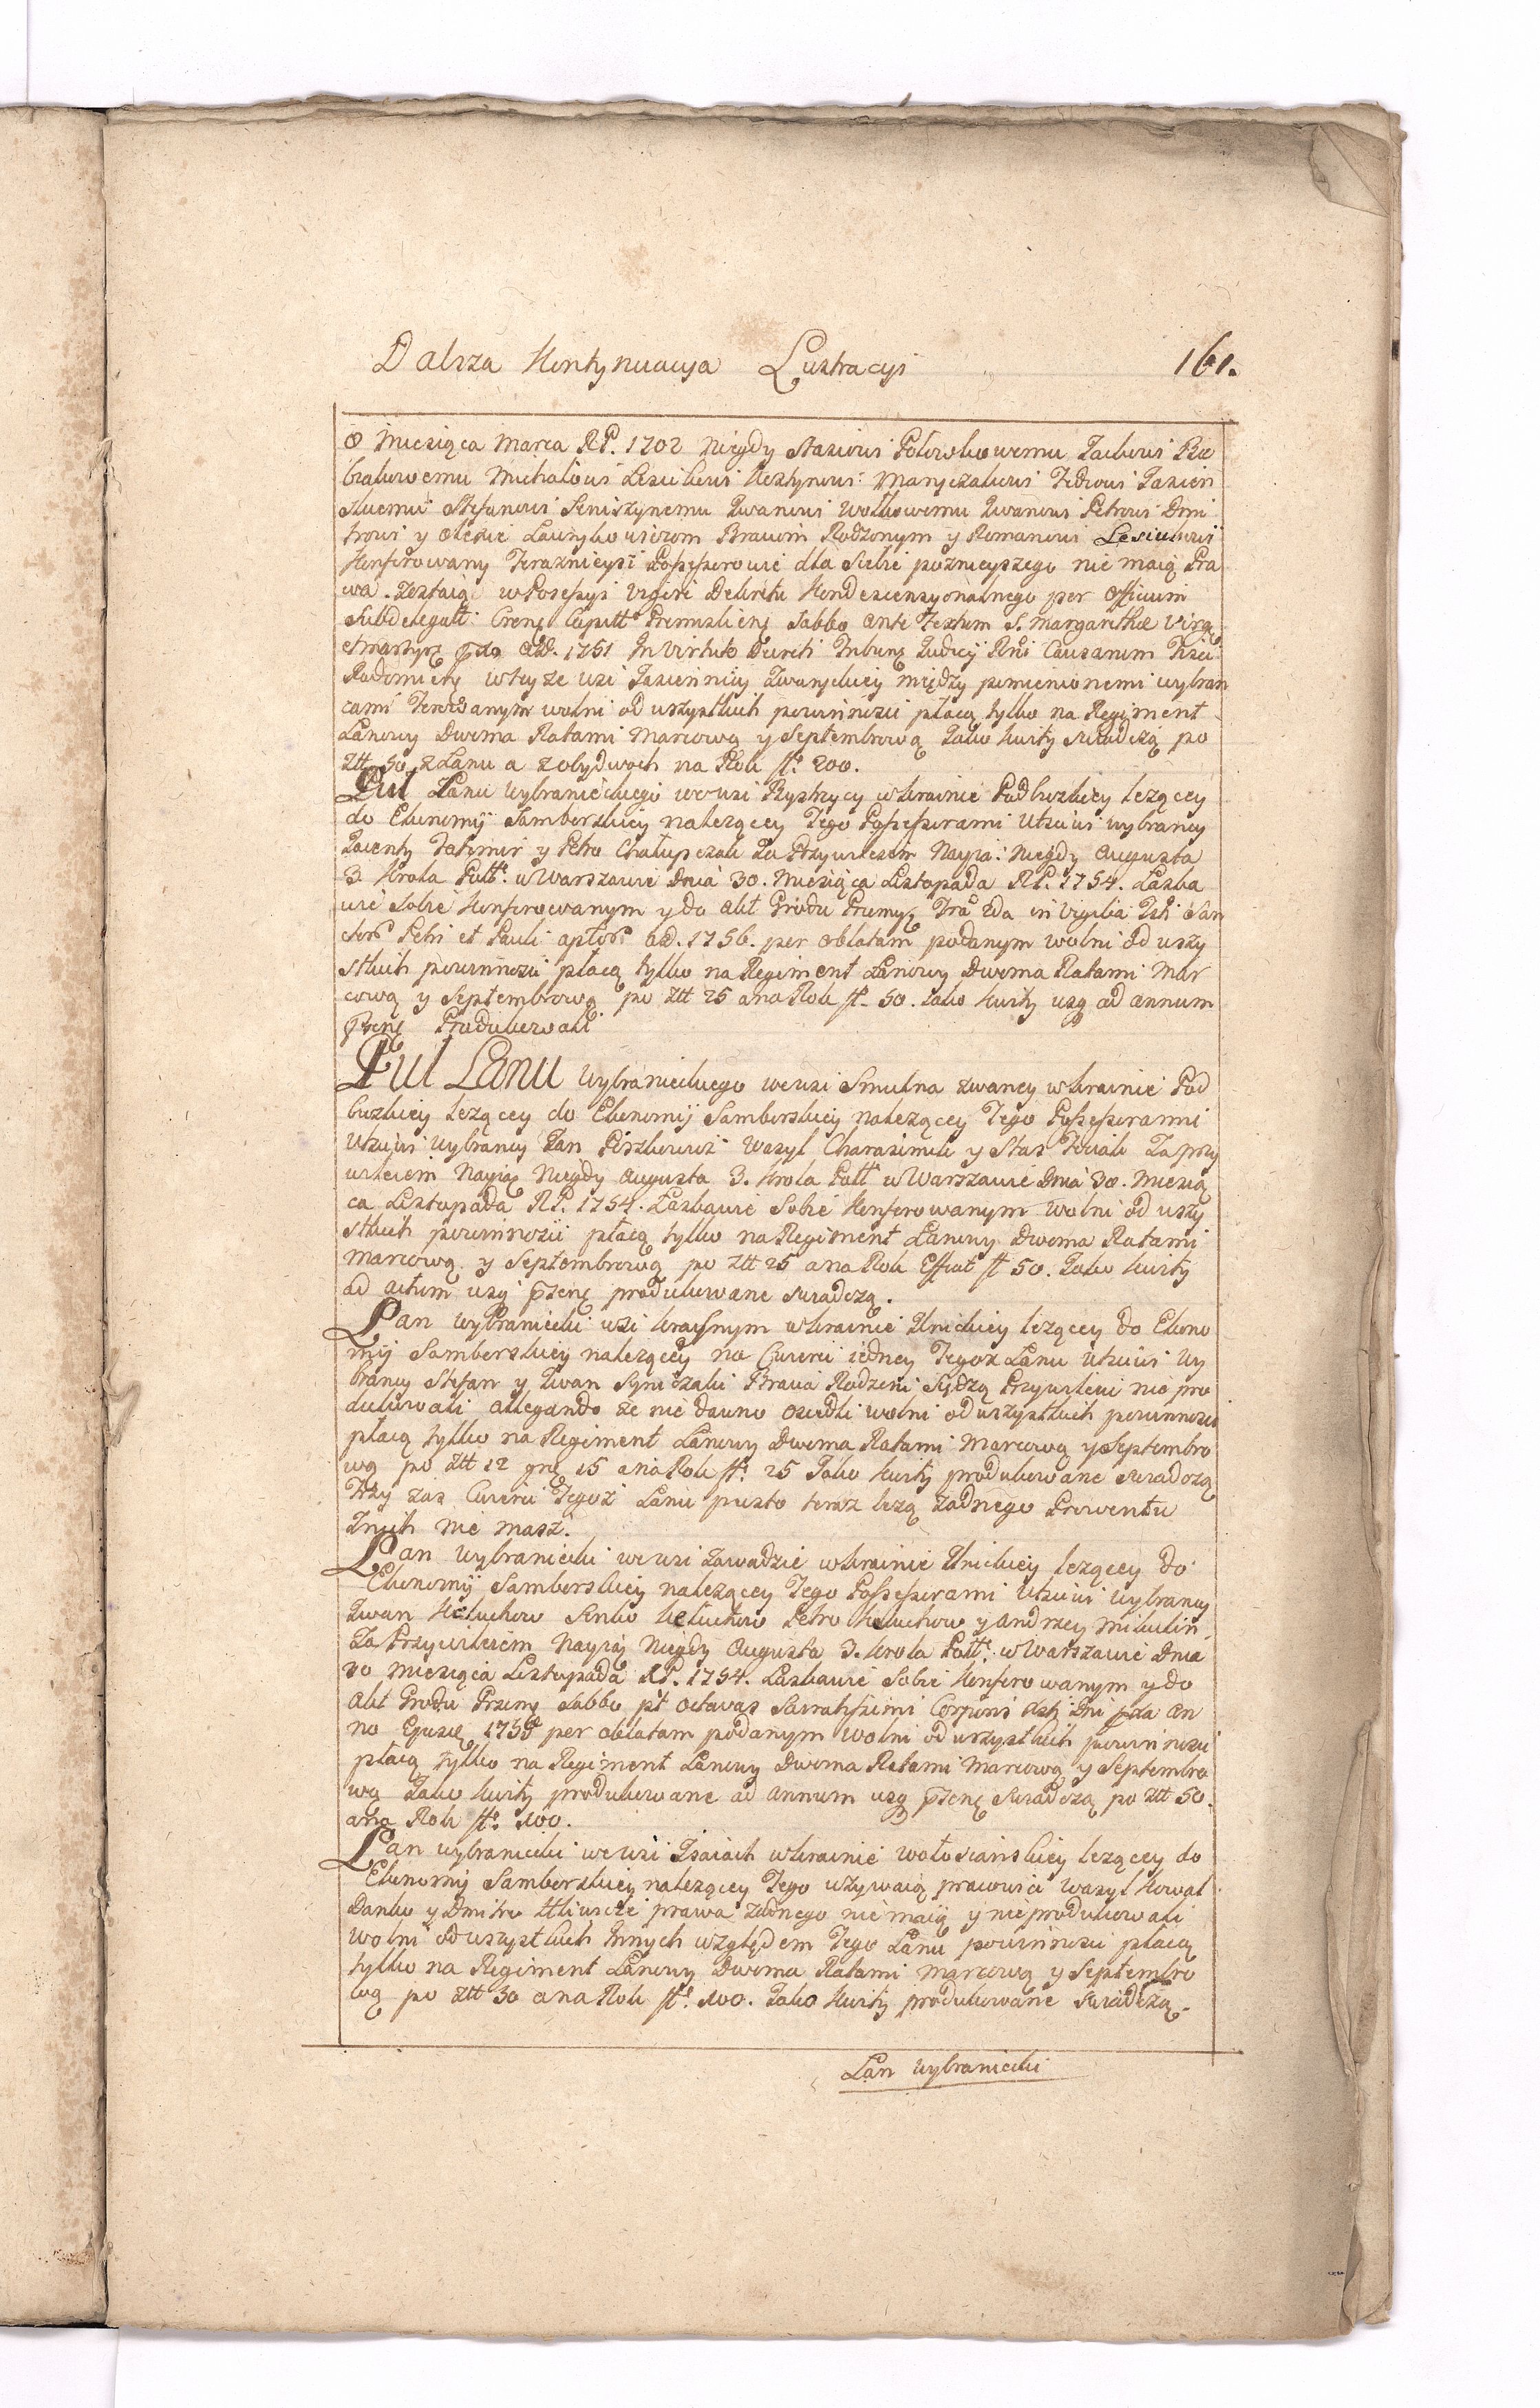 Dalsza Kontynuacya Lustracyi 161.
8 Miesiąca Marca R.P. 1702 Niegdy Stasiowi Polowkowemu Jackowi
brakowemu Michałowi Lesiukowi Kostynowi Manyczakowi Fedkowi Jasien
skiemu Stefanowi Seniszynemu Iwanowi Wołkowemu Iwanowi Petrowi Dmi
trowi y Olexie Ławrykowiczom Braciom Rodzonym y Romanowi Lesiukowi
Konferowany Teraznieysi Possessorowie dla siebie poznieyszego nie maią Pra
wa. Zostaią w Possessyi vigore Dekretu Kondescensyonalnego per Officium
Subdelegatt: Crense Capitt: Premislien Sabbo ante Festum S. Margarethæ Virg
et Martyr pda AD. 1751 In Virtute Decreti Tribun Judicy Rni Causarum Fisci
Radomien w teyze wsi Jasiennicy Zwanyckiey między pomienionemi wybran
cami Ferowanym wolni od wszystkich powinnosci płacą tylko na Regiment
Łanowy Dwoma Ratami Marcową y Septembrową Jako Kwity swiadczą po
Złł 50 z Łanu a z obydwoch na Rok fl. 200.
Puł Łanu Wybranieckiego we wsi Bystrzycy w krainie Podbuzkiey lezącey
do Ekonomij Samborskiey nalezącey Tego Possessorami Utsciwi wybrancy
Jacenty Kazimir y Petro Chałupczak Za Przywileiem Nayia: Niegdy Augusta
3. Krola Poll: w Warszawie Dnia 30. Miesiąca Listopada R.P. 1754. Łaska
wie Sobie Konferowanym y do Akt Grodu Przemys Fra 2da in Vigilia Fsti San
ctor Petri et Pauli aptor AD. 1756. per oblatam podanym wolni od wszy
stkich powinnosci płacą tylko na Regiment Łanowy Dwoma Ratami Mar
cową y Septembrową po Złł 25 a na Rok fl. 50. Jako Kwity usq ad annum
psens Produkowali
Puł Łanu Wybranieckiego we wsi Smulna zwaney w krainie Pod
buzkiey lezącey do Ekonomij Samborskiey nalezącey Tego Possessorami
Utsciwi wybrancy Jan Wasyl Charasimik y Stas Za przy
wileiem Nayias Niegdy Augusta 3. Krola Poll w Warszawie Dnia 30. Miesią
ca Listopada R.P. 1754. Łaskawie Sobie Konferowanym wolni od wszy
stkich powinnosci płacą tylko na Regiment Łanowy Dwoma Ratami
Marcową y Septembrową po Złł 25 a na Rok Efficit fl 50. Jako Kwity
ad actum usq psens produkowane swiadczą.
Łan Wybraniecki wsi Krasnym w krainie Ilnickiey lezącey do Ekono
mij Samborskiey nalezącey na Cwierci iedney Tegoz Łanu Utsciwi Wy
brancy Stefan y Iwan Synczaki Bracia Rodzeni Siędzą Przywileiu nie pro
dukowali allegando ze nie dawno osiedli wolni od wszystkich powinnosci
płacą tylko na Regiment Łanowy Dwoma Ratami Marcową y Septembro
wą po Złł 12 gro 15 a na Rok fl: 25 Jako Kwity produkowane swiadczą
Trzy zas Cwierci Tegoz Łanu pusto teraz lezą zadnego Prowentu
Znich nie masz.
Łan Wybraniecki we wsi Zawadzie w krainie Ilnickiey lezącey do
Ekonomij Samborskiey nalezącey Tego Possessorami Utsciwi wybrancy
Iwan Kluchow Senko Kluchow Petro Kluchow y Andrzey Mikulin
Za Przywileiem Nayiaś Niegdy Augusta 3. Krola Poll: w Warszawie Dnia
30 Miesiąca Listopada R.P. 1754. Łaskawie Sobie Konferowanym y do
Akt Grodu Przemy Sabbo pt octavas Sacratissimi Corporis Xsti Dni pda An
no Ejusq 1755 per oblatam podanym Wolni od wszystkich powinnosci
płacą tylko na Regiment Łanowy Dwoma Ratami Marcową y Septembro
wą Jako Kwity produkowane ad annum usq psens swiadczą po Złł 50.
a na Rok fl: 100.
Łan wybraniecki we wsi Isaiach w krainie Wołosiańskiey lezącey do
Ekonomij Samborskiey nalezącey Tego uzywaią pracowici Wasyl Kowal
Danko y Dmitro prawa zadnego nie maią y nie produkowali
Wolni od wszystkich Innych względem Tego Łanu powinnosci płacą
tylko na Regiment Łanowy Dwoma Ratami Marcową y Septembro
wą po Złł 50 a na Rok fl: 100. Jako Kwity produkowane swiadczą.
Łan wybraniecki